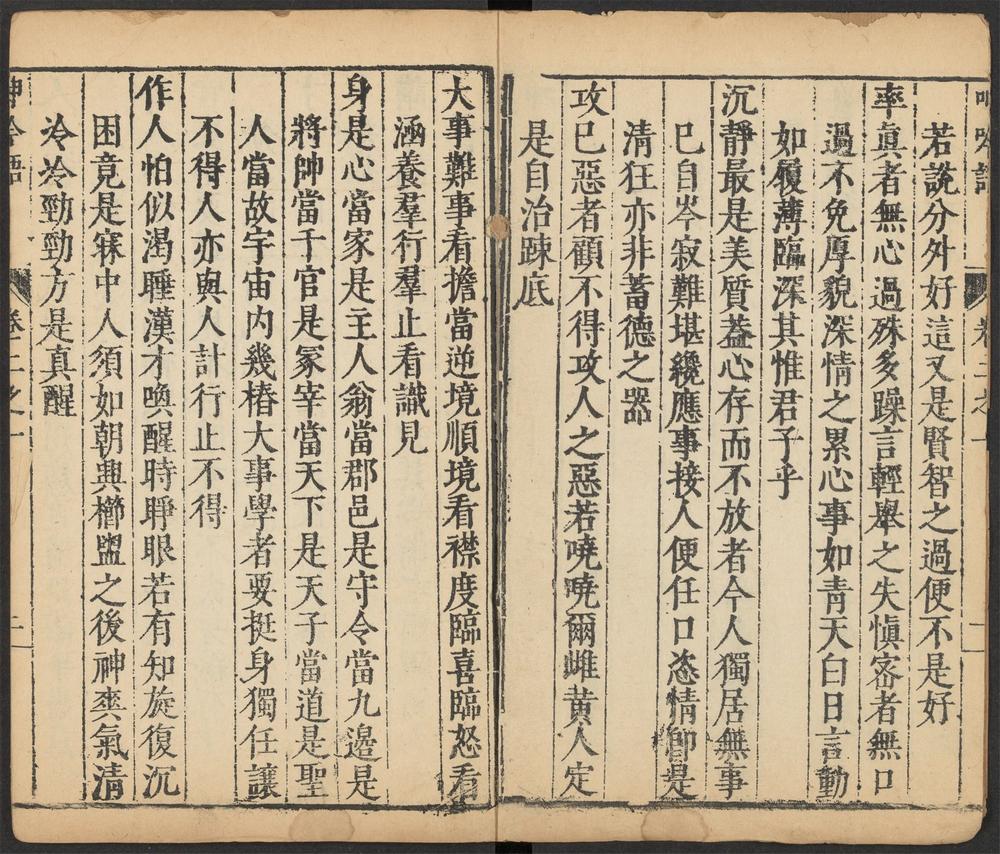 呻吟語 卷二之一 二
若說分外好這又是賢智之過便不是好
率眞者無心過殊多躁言輕舉之失慎密者無口
過不免厚貌深情之累心事如靑天白日言動
如履薄臨深其惟君子乎
沉靜最是美質葢心存而不放者今人獨居無事
巳自岑寂難堪纔應事接人便任口恣情卽是
清狂亦非蓄德之器
攻巳惡者顧不得攻人之惡若嘵嘵爾雌黄人定
是自治踈底
大事難事看擔當逆境順境看襟度臨喜臨怒看
涵養羣行羣止看識見
身是心當家是主人翁當郡邑是守令當九邊是
將帥當千官是冢宰當天下是天子當道是聖
人當故宇宙内幾樁大事學者要挺身獨任讓
不得人亦與人計行止不得
作人怕似渴睡漢才喚醒時睜眼若有知旋復沉
困竟是寐中人須如朝興櫛盥之後神爽氣清
冷冷勁勁方是真醒
呻吟語 卷二之一 二